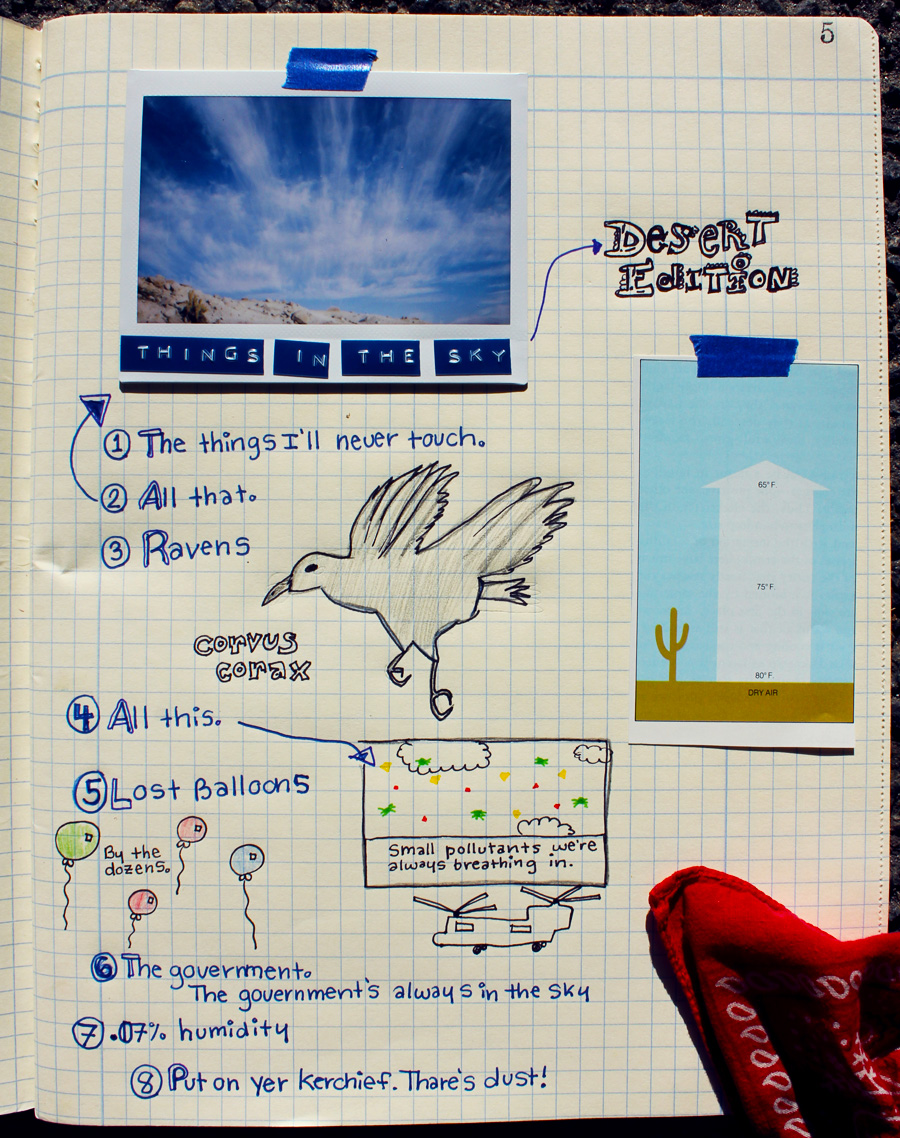 5
THINGS IN THE SKY
DESERT
EDITION
① The things I'll never touch.
② All that.
③ Ravens
65° F.
75° F.
80° F.
DRY AIR
corvus
corax
④ All this.
⑤ Lost Balloons
By the
dozens.
Small pollutants we're
always breathing in.
⑥ The government.
The government's always in the sky
⑦ .07% humidity
⑧ Put on yer kerchief. Thare's dust!